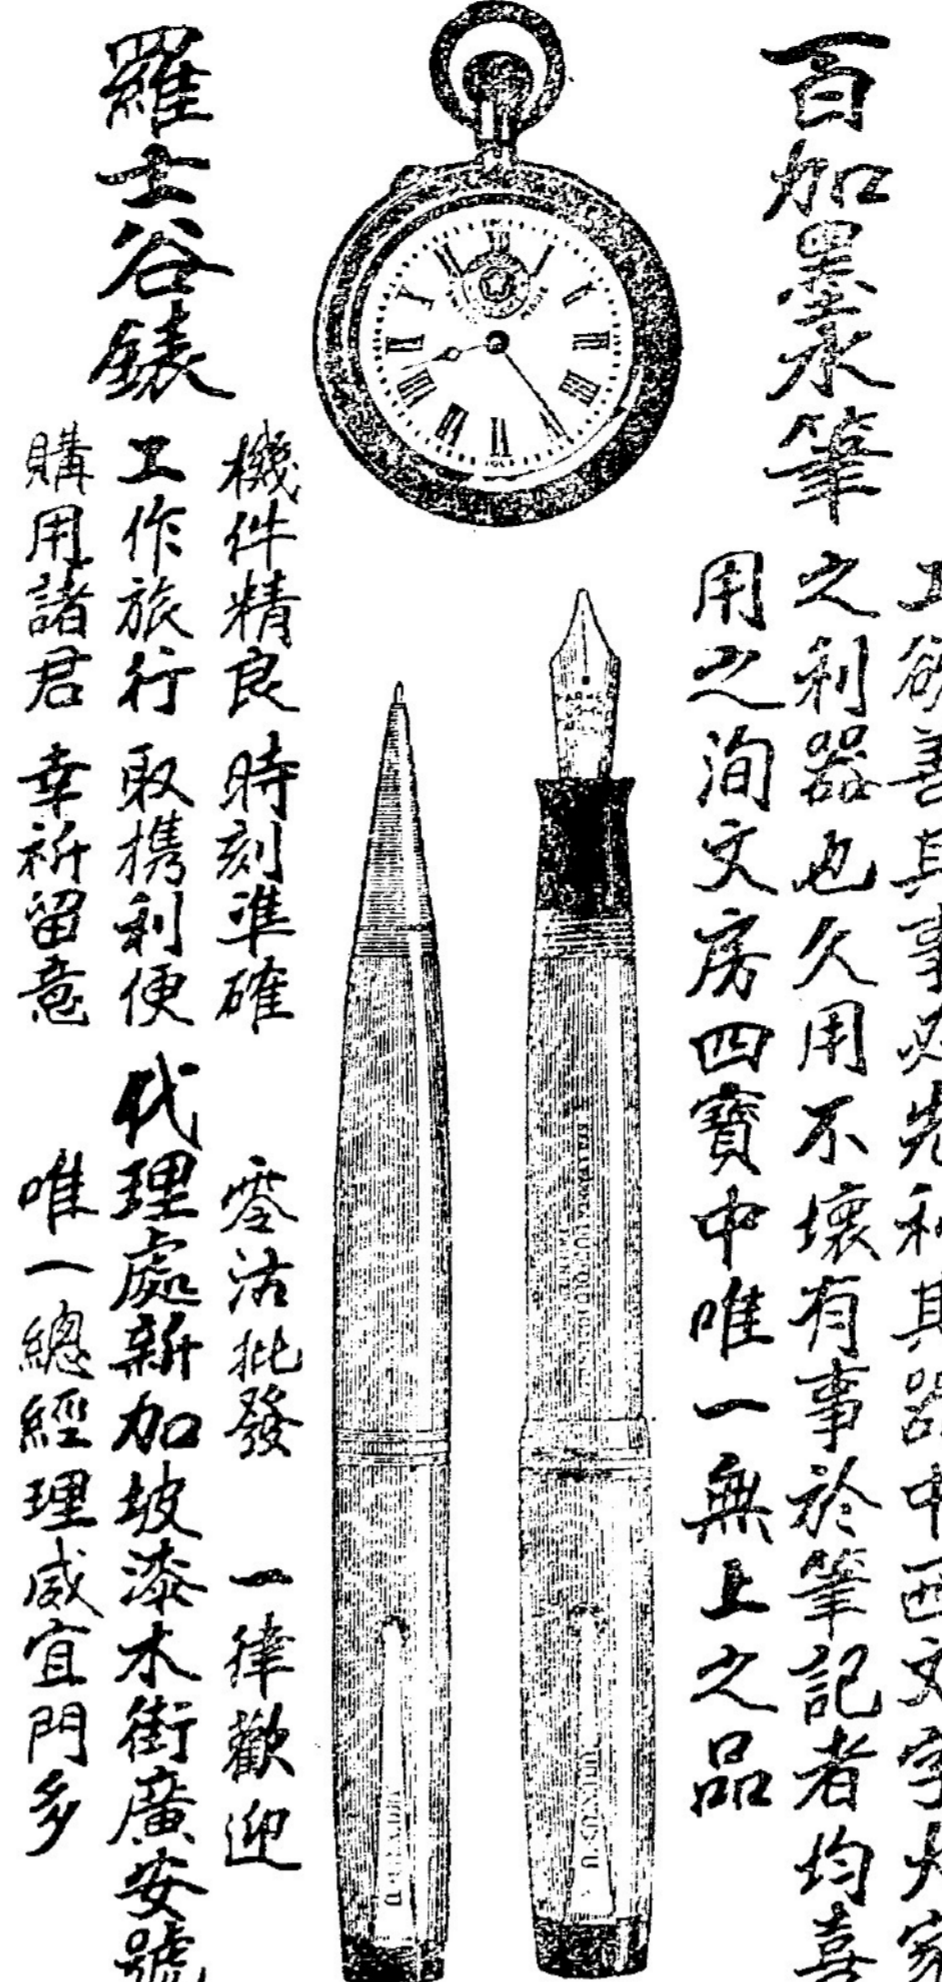 百加墨水筆
工欲善其事必先利其器中西文字大家
之利器也久用不壞有事於筆記者均喜
用之洵文房四寶中唯一無上之品
羅士谷錶
機件精良 時刻準確
工作旅行 取携利便
購用諸君 幸祈留意
零沽批發 一律歡迎
代理處新加坡漆木街廣安號
唯一總經理威宜門多